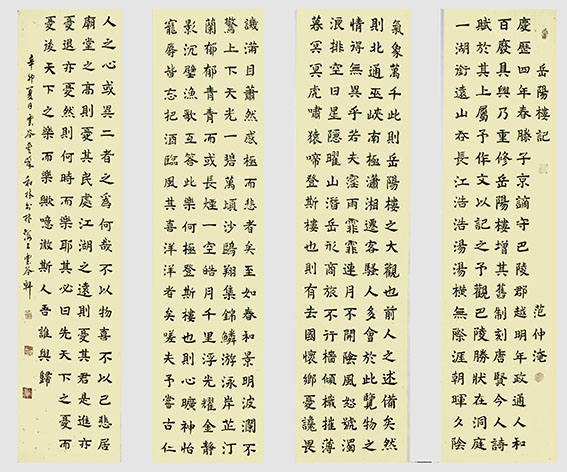 岳陽樓記 范仲淹
慶歷四年春滕子京謫守巴陵郡越明年政通人和
百廢具興乃重修岳陽樓增其舊制刻唐賢今人詩
賦於其上屬予作文以記之予觀巴陵勝狀在洞庭
一湖銜遠山吞長江浩浩湯湯橫無際涯朝暉夕陰
氣象萬千此則岳陽樓之大觀也前人之述備矣然
則北通巫峽南極瀟湘遷客騷人多會於此覽物之
情得無異乎若夫霪雨霏霏連月不開陰風怒號濁
浪排空日星隱曜山潛岳形商旅不行檣傾檝摧薄
暮冥冥虎嘯猿啼登斯樓也則有去國懷鄉憂讒畏
譏滿目蕭然感極而悲者矣至如春和景明波瀾不
驚上下天光一碧萬頃沙鷗翔集錦鱗游泳岸芷汀
蘭郁郁青青而或長煙一空皓月千里浮光耀金靜
影沉璧漁歌互答此樂何極登斯樓也則心曠神怡
寵辱皆忘把酒臨風其喜洋洋者矣嗟夫予嘗古仁
人之心或異二者之為何哉不以物喜不以己悲居
廟堂之高則憂其民處江湖之遠則憂其君是進亦
憂退亦憂然則何時而樂耶其必曰先天下之憂而
憂後天下之樂而樂歟噫微斯人吾誰與歸
辛卯夏月